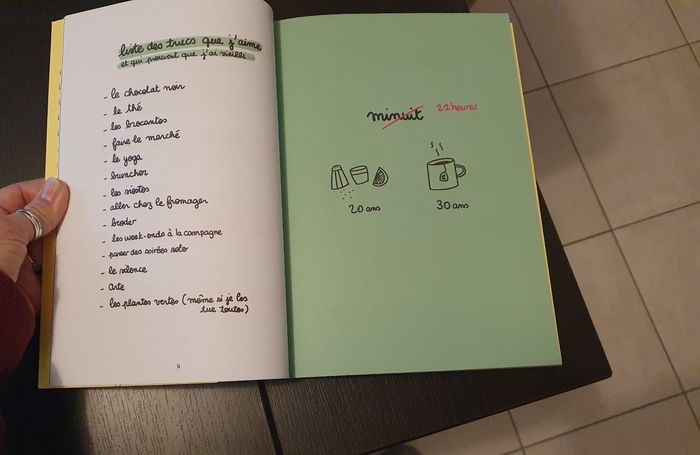 liste des trucs que j'aime
et qui prouvent que j'ai vieilli...
- le chocolat noir
- le thé
- les brocantes
- faire le marché
- le yoga
- bruncher
- les siestes
- aller chez le fromager
- broder
- les week-ends à la campagne
- passer des soirées solo
- le silence
- Arte
- les plantes vertes (même si je les
tue toutes)
minuit 21 heures
20 ans
30 ans